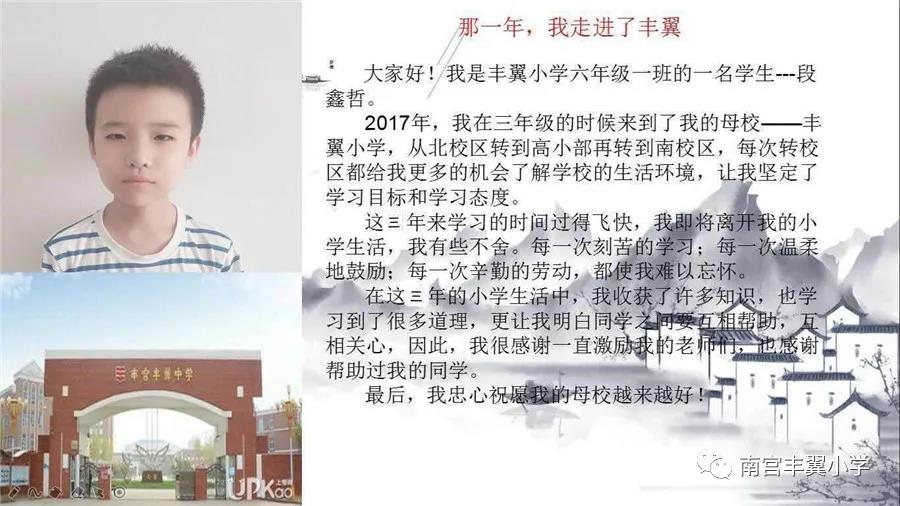 那一年，我走进了丰翼
大家好！我是丰翼小学六年级一班的一名学生---段
鑫哲。
2017年，我在三年级的时候来到了我的母校——丰
翼小学，从北校区转到高小部再转到南校区，每次转校
区都给我更多的机会了解学校的生活环境，让我坚定了
学习目标和学习态度。
这三年来学习的时间过得飞快，我即将离开我的小
学生活，我有些不舍。每一次刻苦的学习；每一次温柔
地鼓励；每一次辛勤的劳动，都使我难以忘怀。
在这三年的小学生活中，我收获了许多知识，也学
习到了很多道理，更让我明白同学之间要互相帮助，互
相关心，因此，我很感谢一直激励我的老师们，也感谢
帮助过我的同学。
最后，我忠心祝愿我的母校越来越好！
南宫丰翼中学
UPKao
上考网
南宫丰翼小学